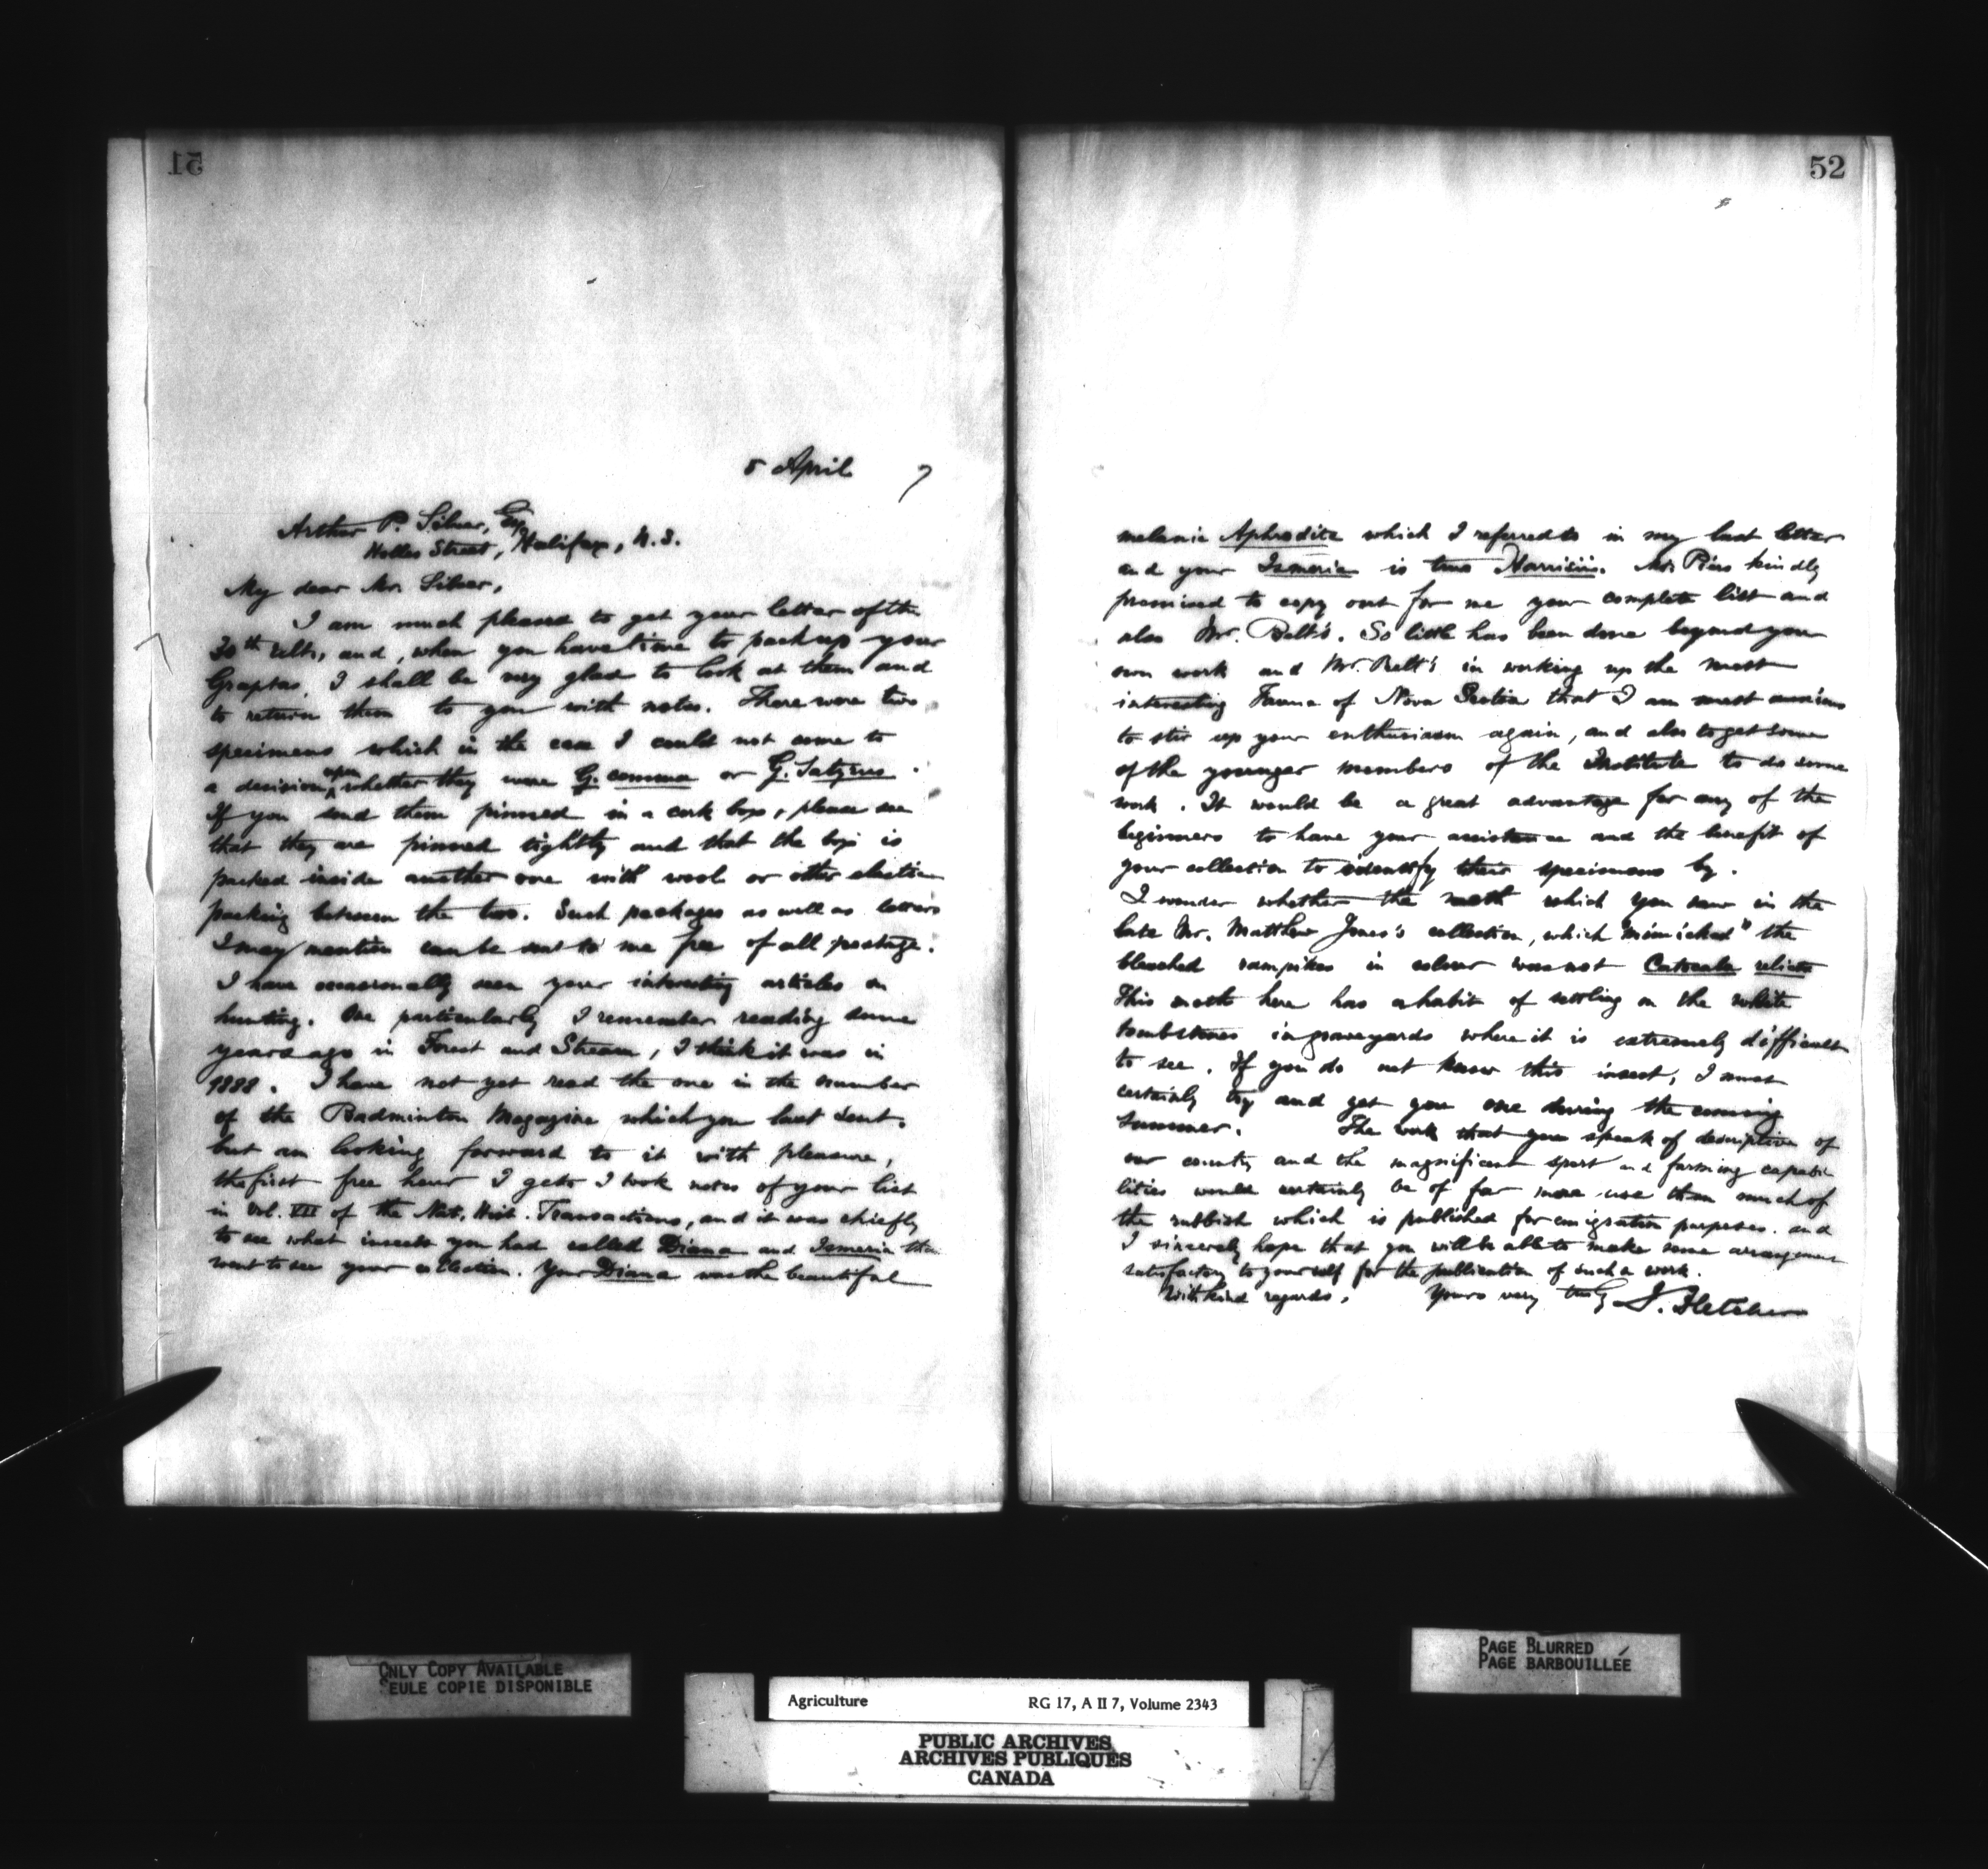 51
5 April 7
Arthur P. Silver, Esq
Hollis Street, Halifax, N.S.
My dear Mr. Silver,
I am much pleased to get your letter of the
30th ult., and, when you have time to pack up your
Graptas, I shall be very glad to look at them and
to return them to you with notes. There were two
specimens which in the case I could not come to
a decision upon whether they were G. comma or G. Satyrus.
If you send them pinned in a cork box, please see
that they are pinned tightly and that the box is
packed inside another one with wool or other elastic
packing between the two. Such packages as well as letters
I may mention can be sent to me free of all postage.
I have occasionally seen your interesting articles on
hunting. One particularly I remember reading some
years ago in Forest and Stream, I think it was in
1888. I have not yet read the one in the number
of the Badminton Magazine which you last sent,
but am looking forward to it with pleasure,
the first free hour I get. I took notes of your list
in Vol. VII of the Nat. Hist. Transactions, and it was chiefly
to see what insects you had called Diana and Ismeria that
went to see your collection. Your Diana was the beautiful
52
melanic Aphrodite which I referred to in my last letter
and your Ismeria is true Harrisii. Mr. Piers kindly
promised to copy out for me your complete list and
also Mr. Belt's. So little has been done beyond your
own work and Mr. Belt's in working up the most
interesting Fauna of Nova Scotia that I am most anxious
to stir up your enthusiasm again, and also to get some
of the younger members of the Institute to do some
work. It would be a great advantage for any of the
beginners to have your assistance and the benefit of
your collection to identify their specimens by.
I wonder whether the moth which you saw in the
late Mr. Matthew Jones's collection, which "mimicked" the
bleached rampikes in colour was not Catocala relicta
This moth here has a habit of settling on the white
tombstones in graveyards where it is extremely difficult
to see. If you do not know this insect, I must
certainly try and get you one during the coming
summer. The work that you speak of descriptive of
our country and the magnificent sport and farming capabi
lities would certainly be of far more use than much of
the rubbish which is published for emigration purposes. and
I sincerely hope that you will be able to make some arrangement
satisfactory to yourself for the publication of such a work.
With kind regards, Yours very truly J. Fletcher
ONLY COPY AVAILABLE
SEULE COPIE DISPONIBLE
PAGE BLURRED
PAGE BARBOUILLÉE
Agriculture RG 17, A II 7, Volume 2343
PUBLIC ARCHIVES
ARCHIVES PUBLIQUES
CANADA